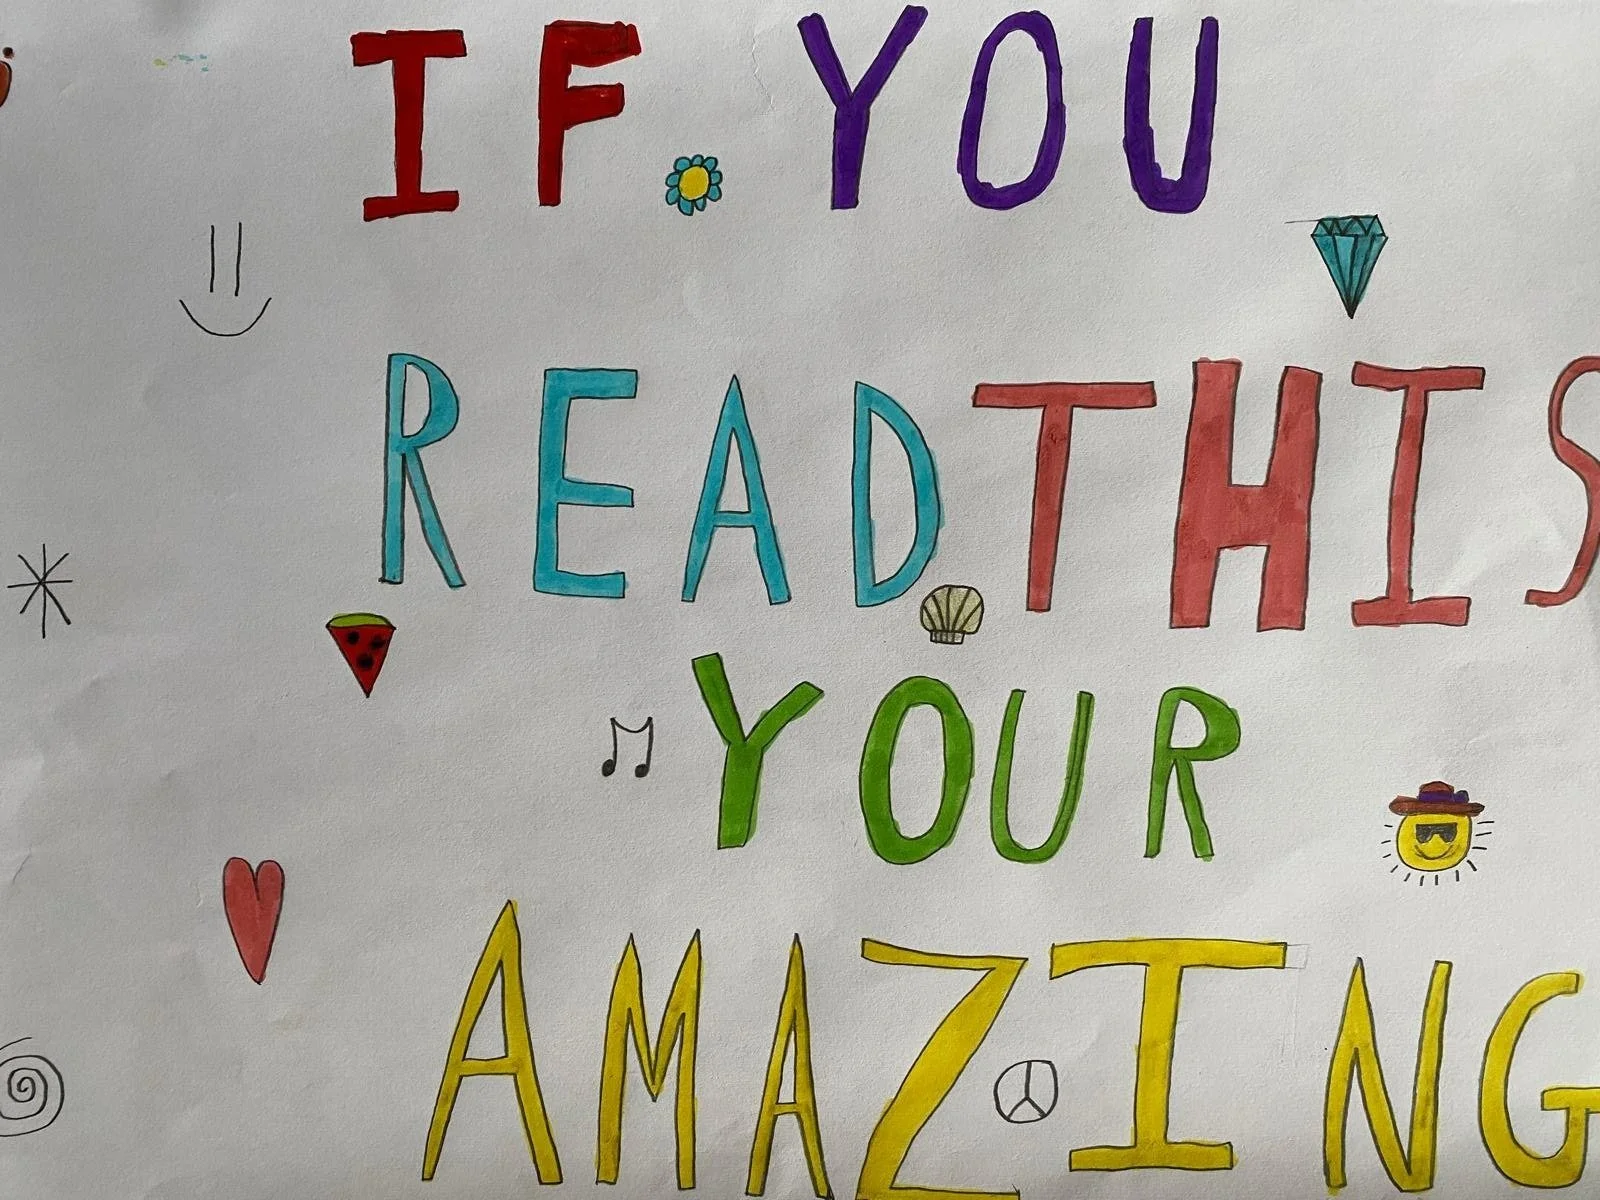 IF YOU
READ THIS
YOUR
AMAZING